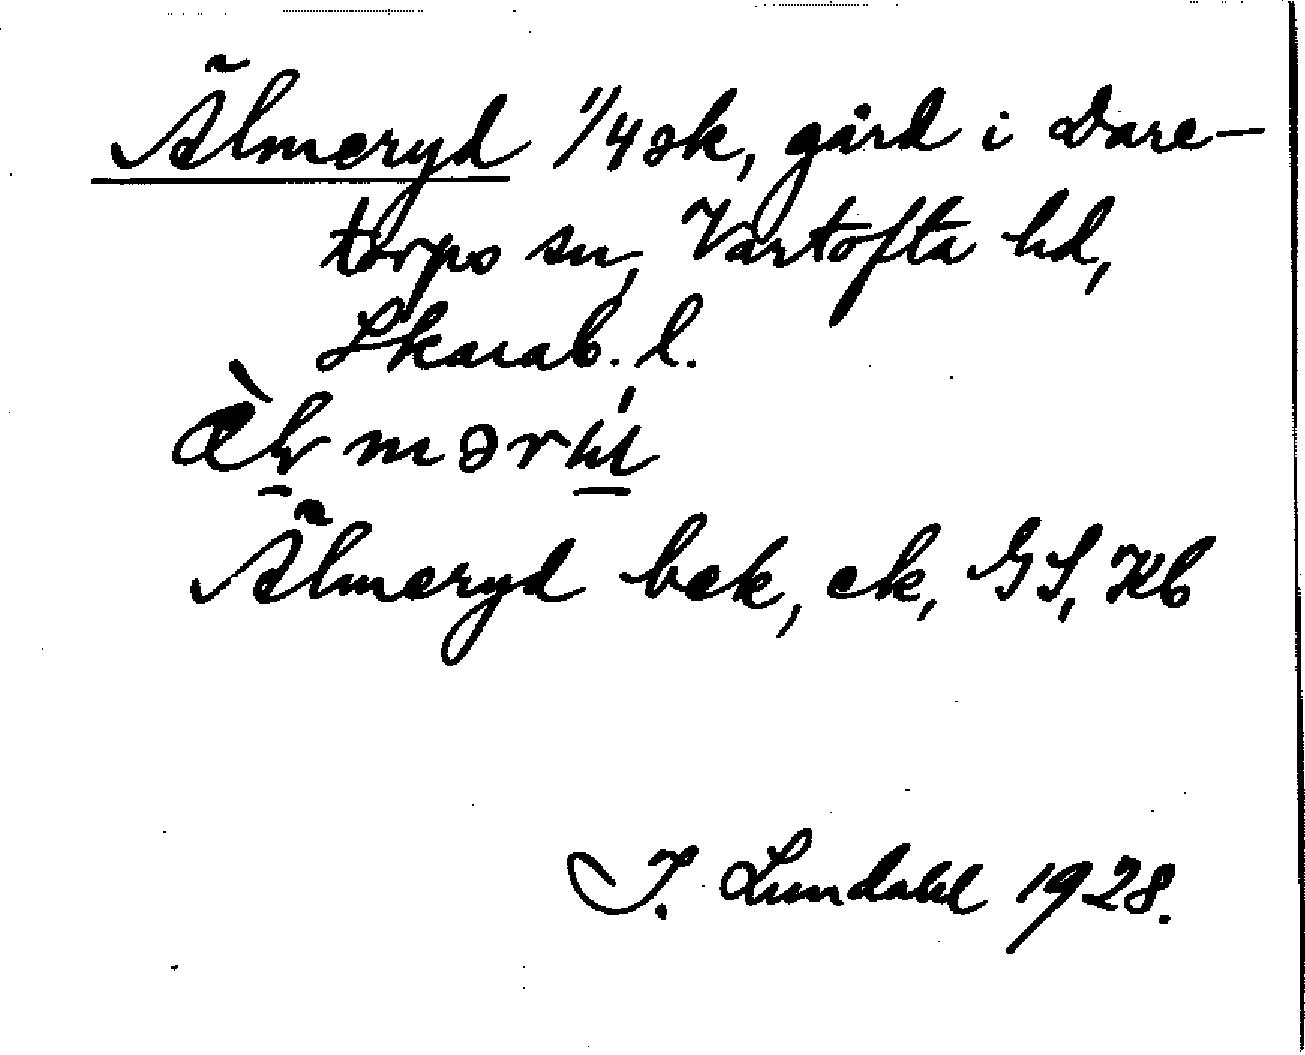 Älmeryd 1/4 sk, gård i Dare-
torps sn, Vartofta hd,
Skarab. l.
Älmeryd bek, ek, GS, Kb
I. Lundahl 1928.